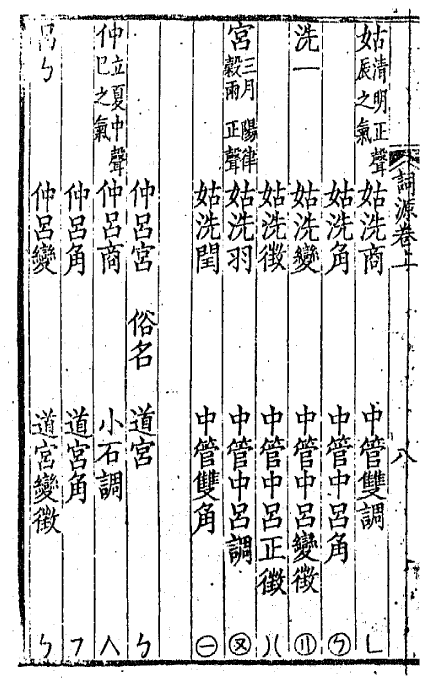 詞源卷上 八
姑 清明正聲 辰之氣 姑洗商 中管雙調 ㄴ
姑洗角 中管中呂角
洗一 姑洗變 中管中呂變徵
姑洗徵 中管中呂正徵 八
宮 三月陽律 穀雨正聲 姑洗羽 中管中呂調
姑洗閏 中管雙角 ㊀
仲呂宮 俗名 道宮 ㄅ
仲 立夏中聲 巳之氣 仲呂商 小石調 人
仲呂角 道宮角 フ
呂ㄅ 仲呂變 道宮變徵 ㄅ